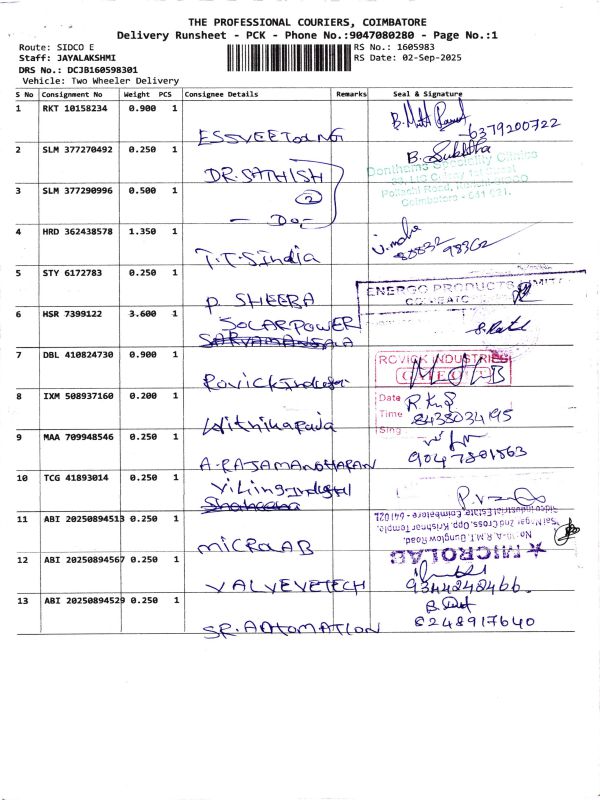 THE PROFESSIONAL COURIERS, COIMBATORE
Delivery Runsheet - PCK - Phone No.:9047080280 - Page No.:1
Route: SIDCO E
RS No.: 1605983
Staff: JAYALAKSHMI
RS Date: 02-Sep-2025
DRS No.: DCJB160598301
Vehicle: Two Wheeler Delivery
S No Consignment No Weight PCS Consignee Details Remarks Seal & Signature
1 RKT 10158234 0.900 1
6379200722
2 SLM 377270492 0.250 1
DR.SATHISH
Speciality Clinics
3 SLM 377290996 0.500 1
2
Pollachi Road,
Coimbatore - 641 021.
- Do -
4 HRD 362438578 1.350 1
T.T.S India
5 STY 6172783 0.250 1
P. SHEEBA
ENERGO PRODUCTS LIMITED
6 HSR 7399122 3.600 1
SOLAR POWER
7 DBL 410824730 0.900 1
ROVICK INDUSTRIES
8 IXM 508937160 0.200 1
Date
Time 8438034195
Sing
9 MAA 709948546 0.250 1
9047801863
A. RAJAMANOHARAN
10 TCG 41893014 0.250 1
11 ABI 20250894513 0.250 1
MICROLAB
No:10-A, R.M.T. Bunglow Road,
Sai Nagar 2nd Cross, Opp. Krishnar Temple,
Sidco Industrial Estate, Coimbatore - 641 021.
12 ABI 20250894567 0.250 1
VALVETECH
9344248466.
13 ABI 20250894529 0.250 1
SR. AUTOMATION
8248917640